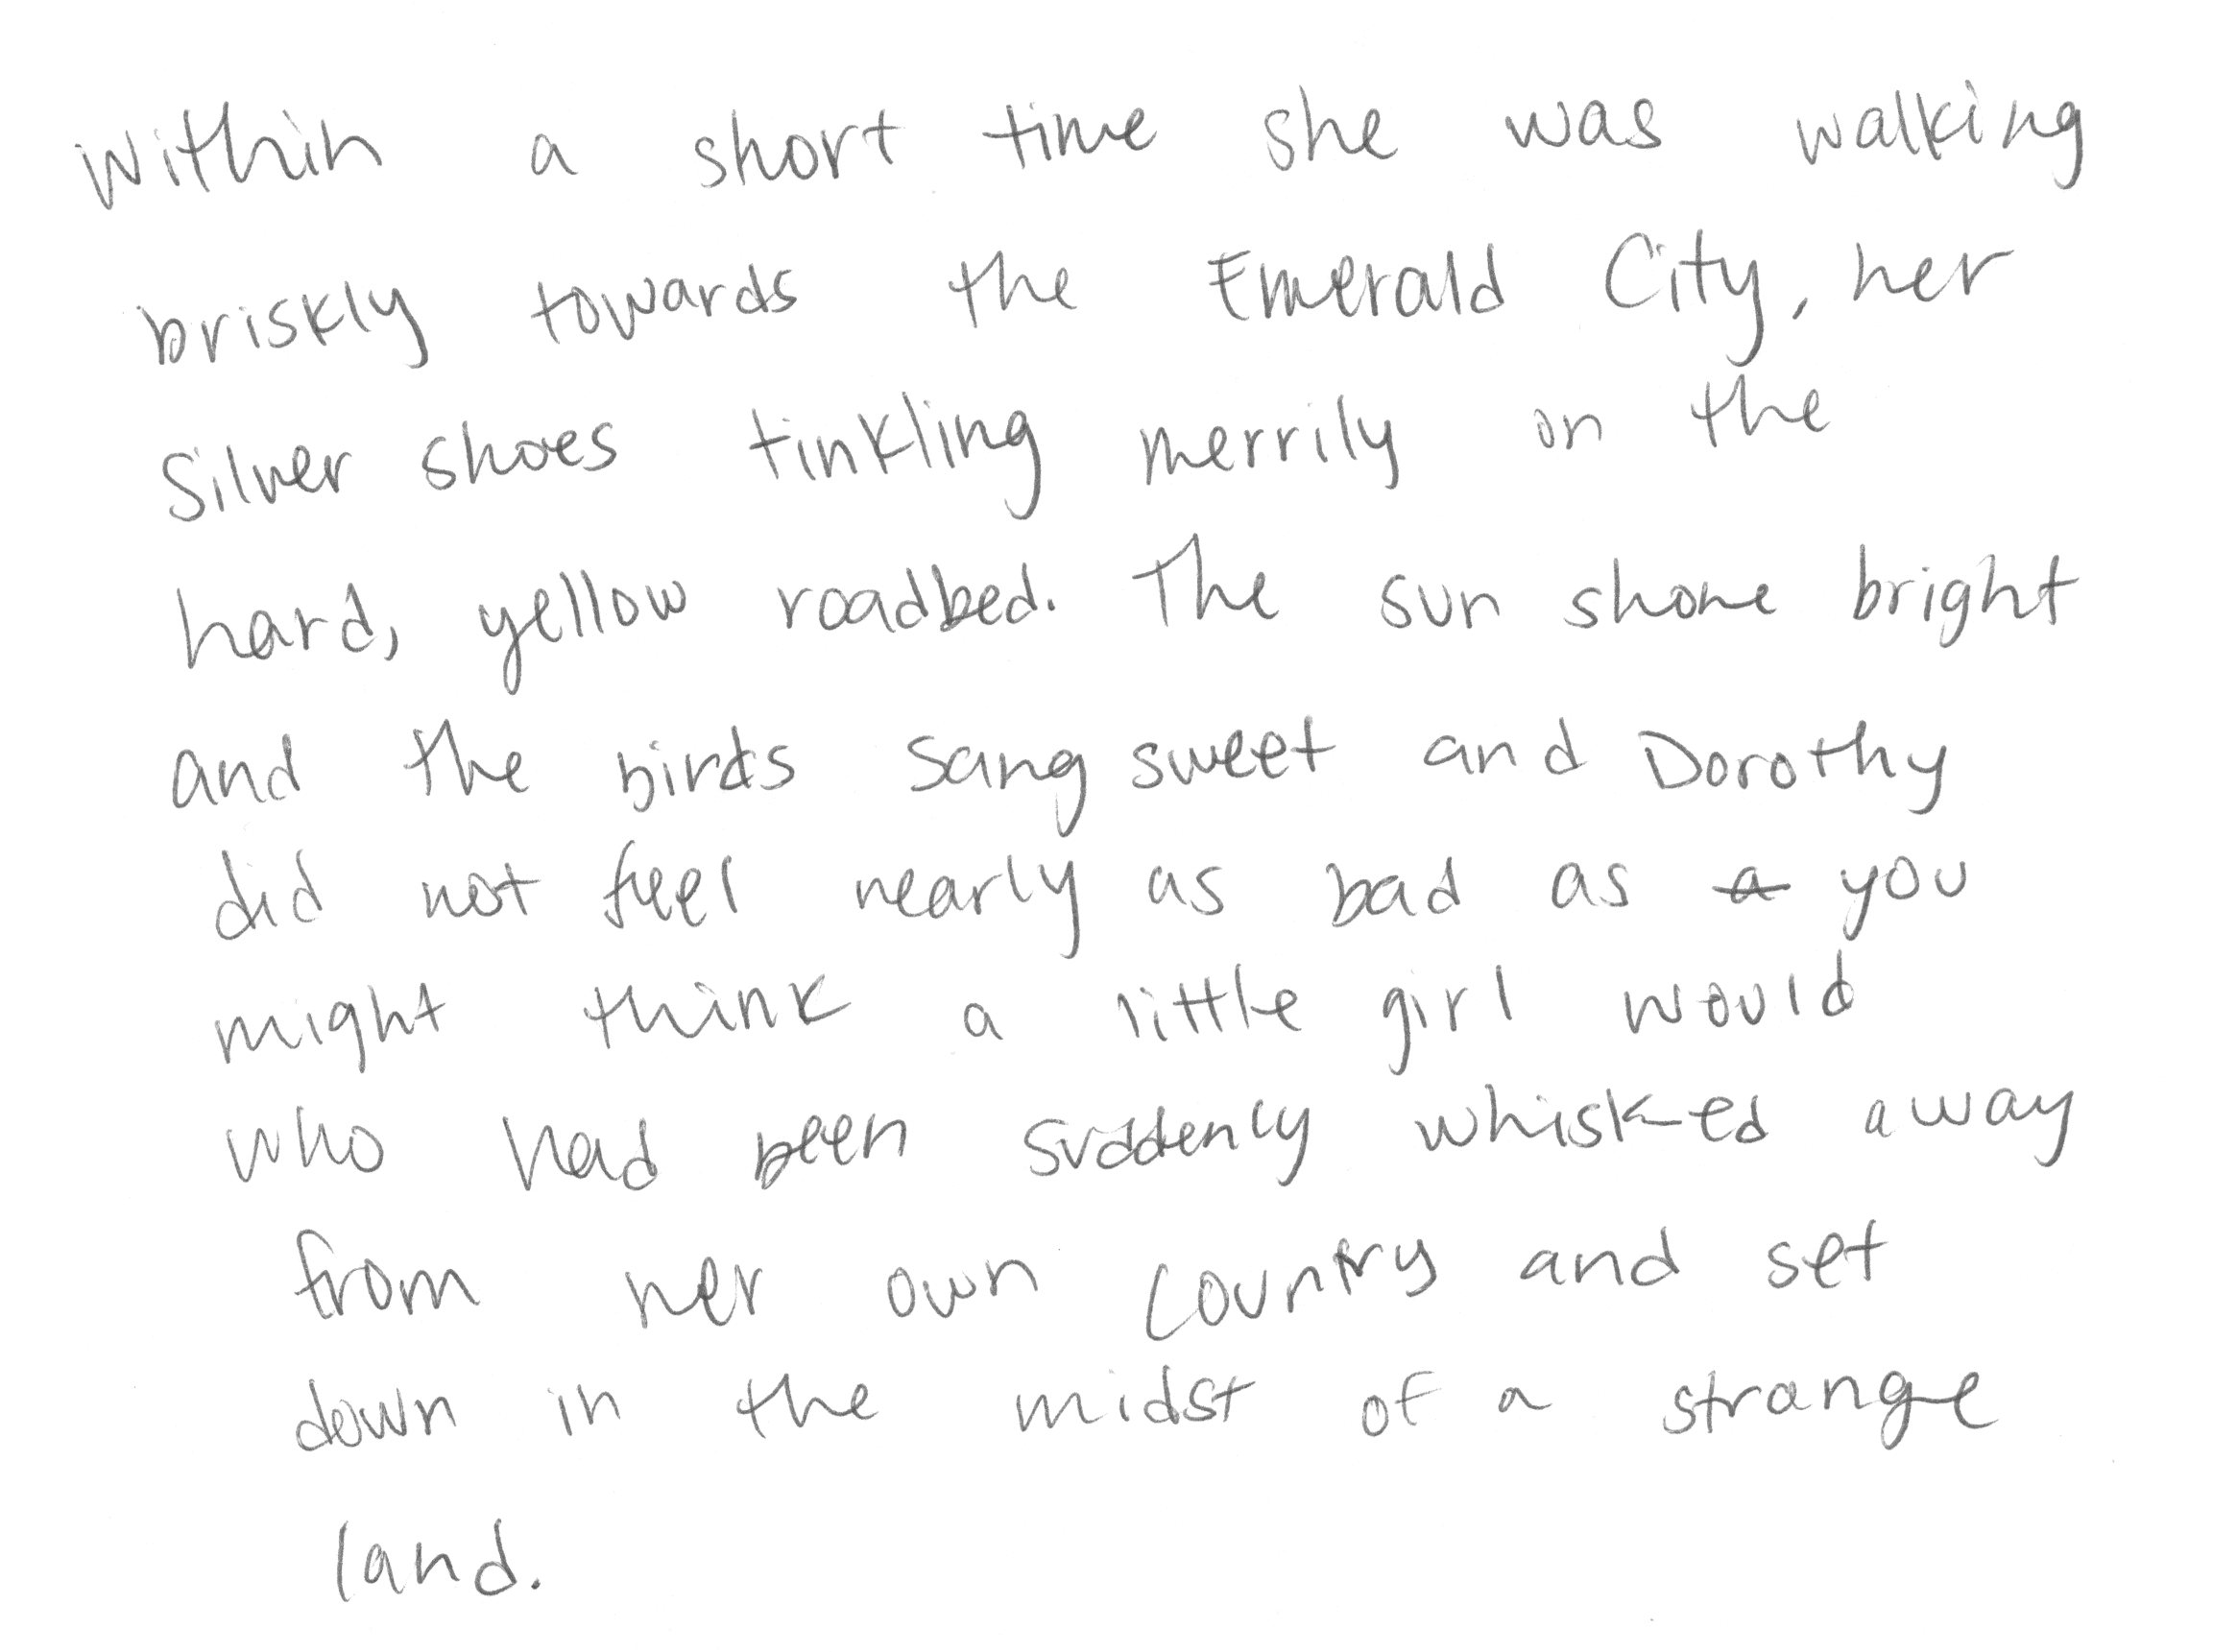 Within a short time she was walking
briskly towards the Emerald City, her
Silver shoes tinkling merrily on the
hard, yellow roadbed. The sun shone bright
and the birds sang sweet and Dorothy
did not feel nearly as bad as a you
might think a little girl would
who had been suddenly whisked away
from her own country and set
down in the midst of a strange
land.